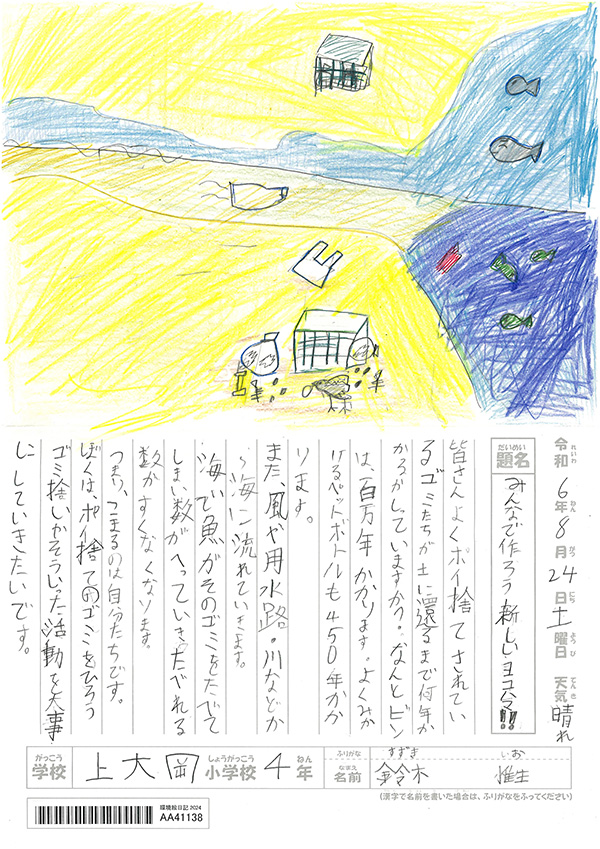 令和6年8月24日土曜日 天気晴れ
れいわ ねん がつ にち ようび てんき
だいめい
題名 みんなで作ろう新しいヨコハマ!!
皆さんよくポイ捨てされてい
るゴミたちが土に還るまで何年か
かるかしっていますか?なんとビン
は、一百万年かかります。よくみか
けるペットボトルも450年かか
ります。
また、風や用水路・川などか
ら海に流れていきます。
海いで魚がそのゴミをたべて
しまい数がへっていきたべれる
数がすくなくなります。
つまり、つまるのは自分たちです。
ぼくは、ポイ捨てのゴミをひろう
ゴミ捨いかそういった活動を大事
にしていきたいです。
がっこう しょうがっこう ねん
学校 上大岡小学校4年
ふりがな すずき いお
なまえ
名前 鈴木 惟生
(漢字で名前を書いた場合は、ふりがなをふってください)
環境絵日記2024
AA41138